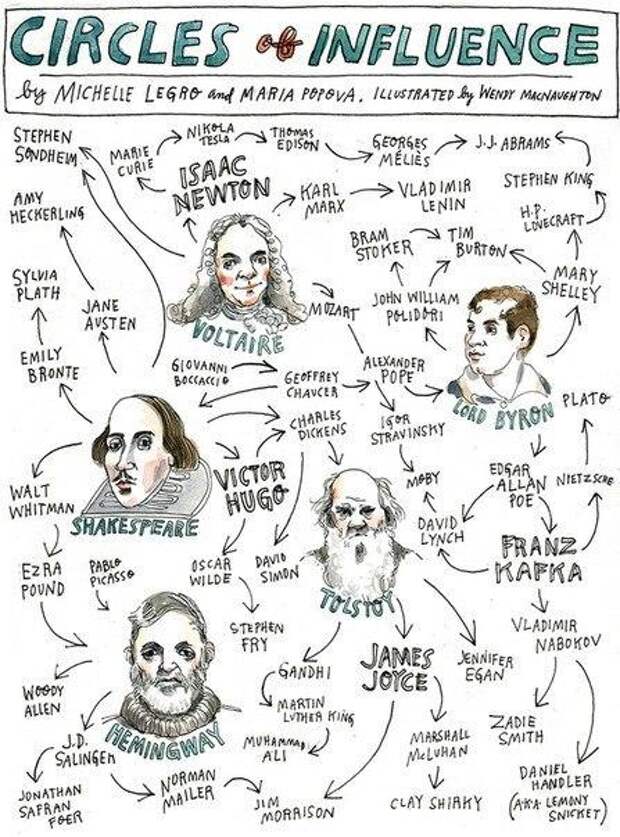 CIRCLES of INFLUENCE
by MICHELLE LEGRO and MARIA POPOVA. ILLUSTRATED by WENDY MACNAUGHTON
STEPHEN
SONDHEIM
MARIE
CURIE
NIKOLA
TESLA
THOMAS
EDISON
GEORGES
MÉLIÈS
J.J. ABRAMS
ISAAC
NEWTON
KARL
MARX
VLADIMIR
LENIN
STEPHEN KING
AMY
HECKERLING
H.P.
LOVECRAFT
BRAM
STOKER
TIM
BURTON
SYLVIA
PLATH
JANE
AUSTEN
MOZART
JOHN WILLIAM
POLIDORI
MARY
SHELLEY
VOLTAIRE
EMILY
BRONTE
GIOVANNI
BOCCACCIO
GEOFFREY
CHAUCER
ALEXANDER
POPE
LORD BYRON
PLATO
CHARLES
DICKENS
IGOR
STRAVINSKY
WALT
WHITMAN
SHAKESPEARE
VICTOR
HUGO
MOBY
EDGAR
ALLAN
POE
NIETZSCHE
DAVID
LYNCH
FRANZ
KAFKA
EZRA
POUND
PABLO
PICASSO
OSCAR
WILDE
DAVID
SIMON
TOLSTOY
STEPHEN
FRY
VLADIMIR
NABOKOV
GANDHI
JAMES
JOYCE
JENNIFER
EGAN
WOODY
ALLEN
HEMINGWAY
MARTIN
LUTHER KING
MUHAMMAD
ALI
MARSHALL
McLUHAN
ZADIE
SMITH
J.D.
SALINGER
NORMAN
MAILER
JONATHAN
SAFRAN
FOER
JIM
MORRISON
CLAY SHIRKY
DANIEL
HANDLER
(A.K.A. LEMONY
SNICKET)